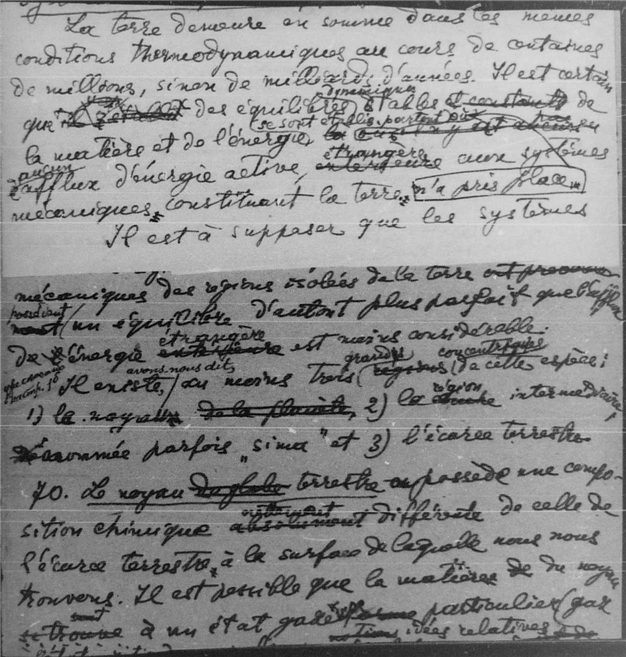 La terre demeure en somme dans les mêmes
conditions thermodynamiques au cours de centaines
de millions, sinon de milliards d'années. Il est certain
dynamique
que il s'établit des équilibres stables et constants de
se sont établis partout où
la matière et de l'énergie, là où il n'y est aucun
aucun étrangère
afflux d'énergie active, extérieure aux systèmes
mécaniques, constituant la terre, n'a pris place.
Il est à supposer que les systèmes
mécaniques des régions isolées de la terre
possèdent
un équilibre d'autant plus parfait que l'afflux
étrangère
de l'énergie extérieure est moins considérable.
grandes concentriques
avons nous dit,
Il existe, au moins trois régions de cette espèce:
région
1) le noyau de la planète, 2) la intermédiaire,
nommée parfois „sima" et 3) l'écorce terrestre
70. Le noyau du globe terrestre possède une compo-
nettement
sition chimique absolument différente de celle de
l'écorce terrestre, à la surface de laquelle nous nous
trouvons. Il est possible que la matière de du noyau
soit
se trouve à un état gazeux particulier (gaz
notions idées relatives